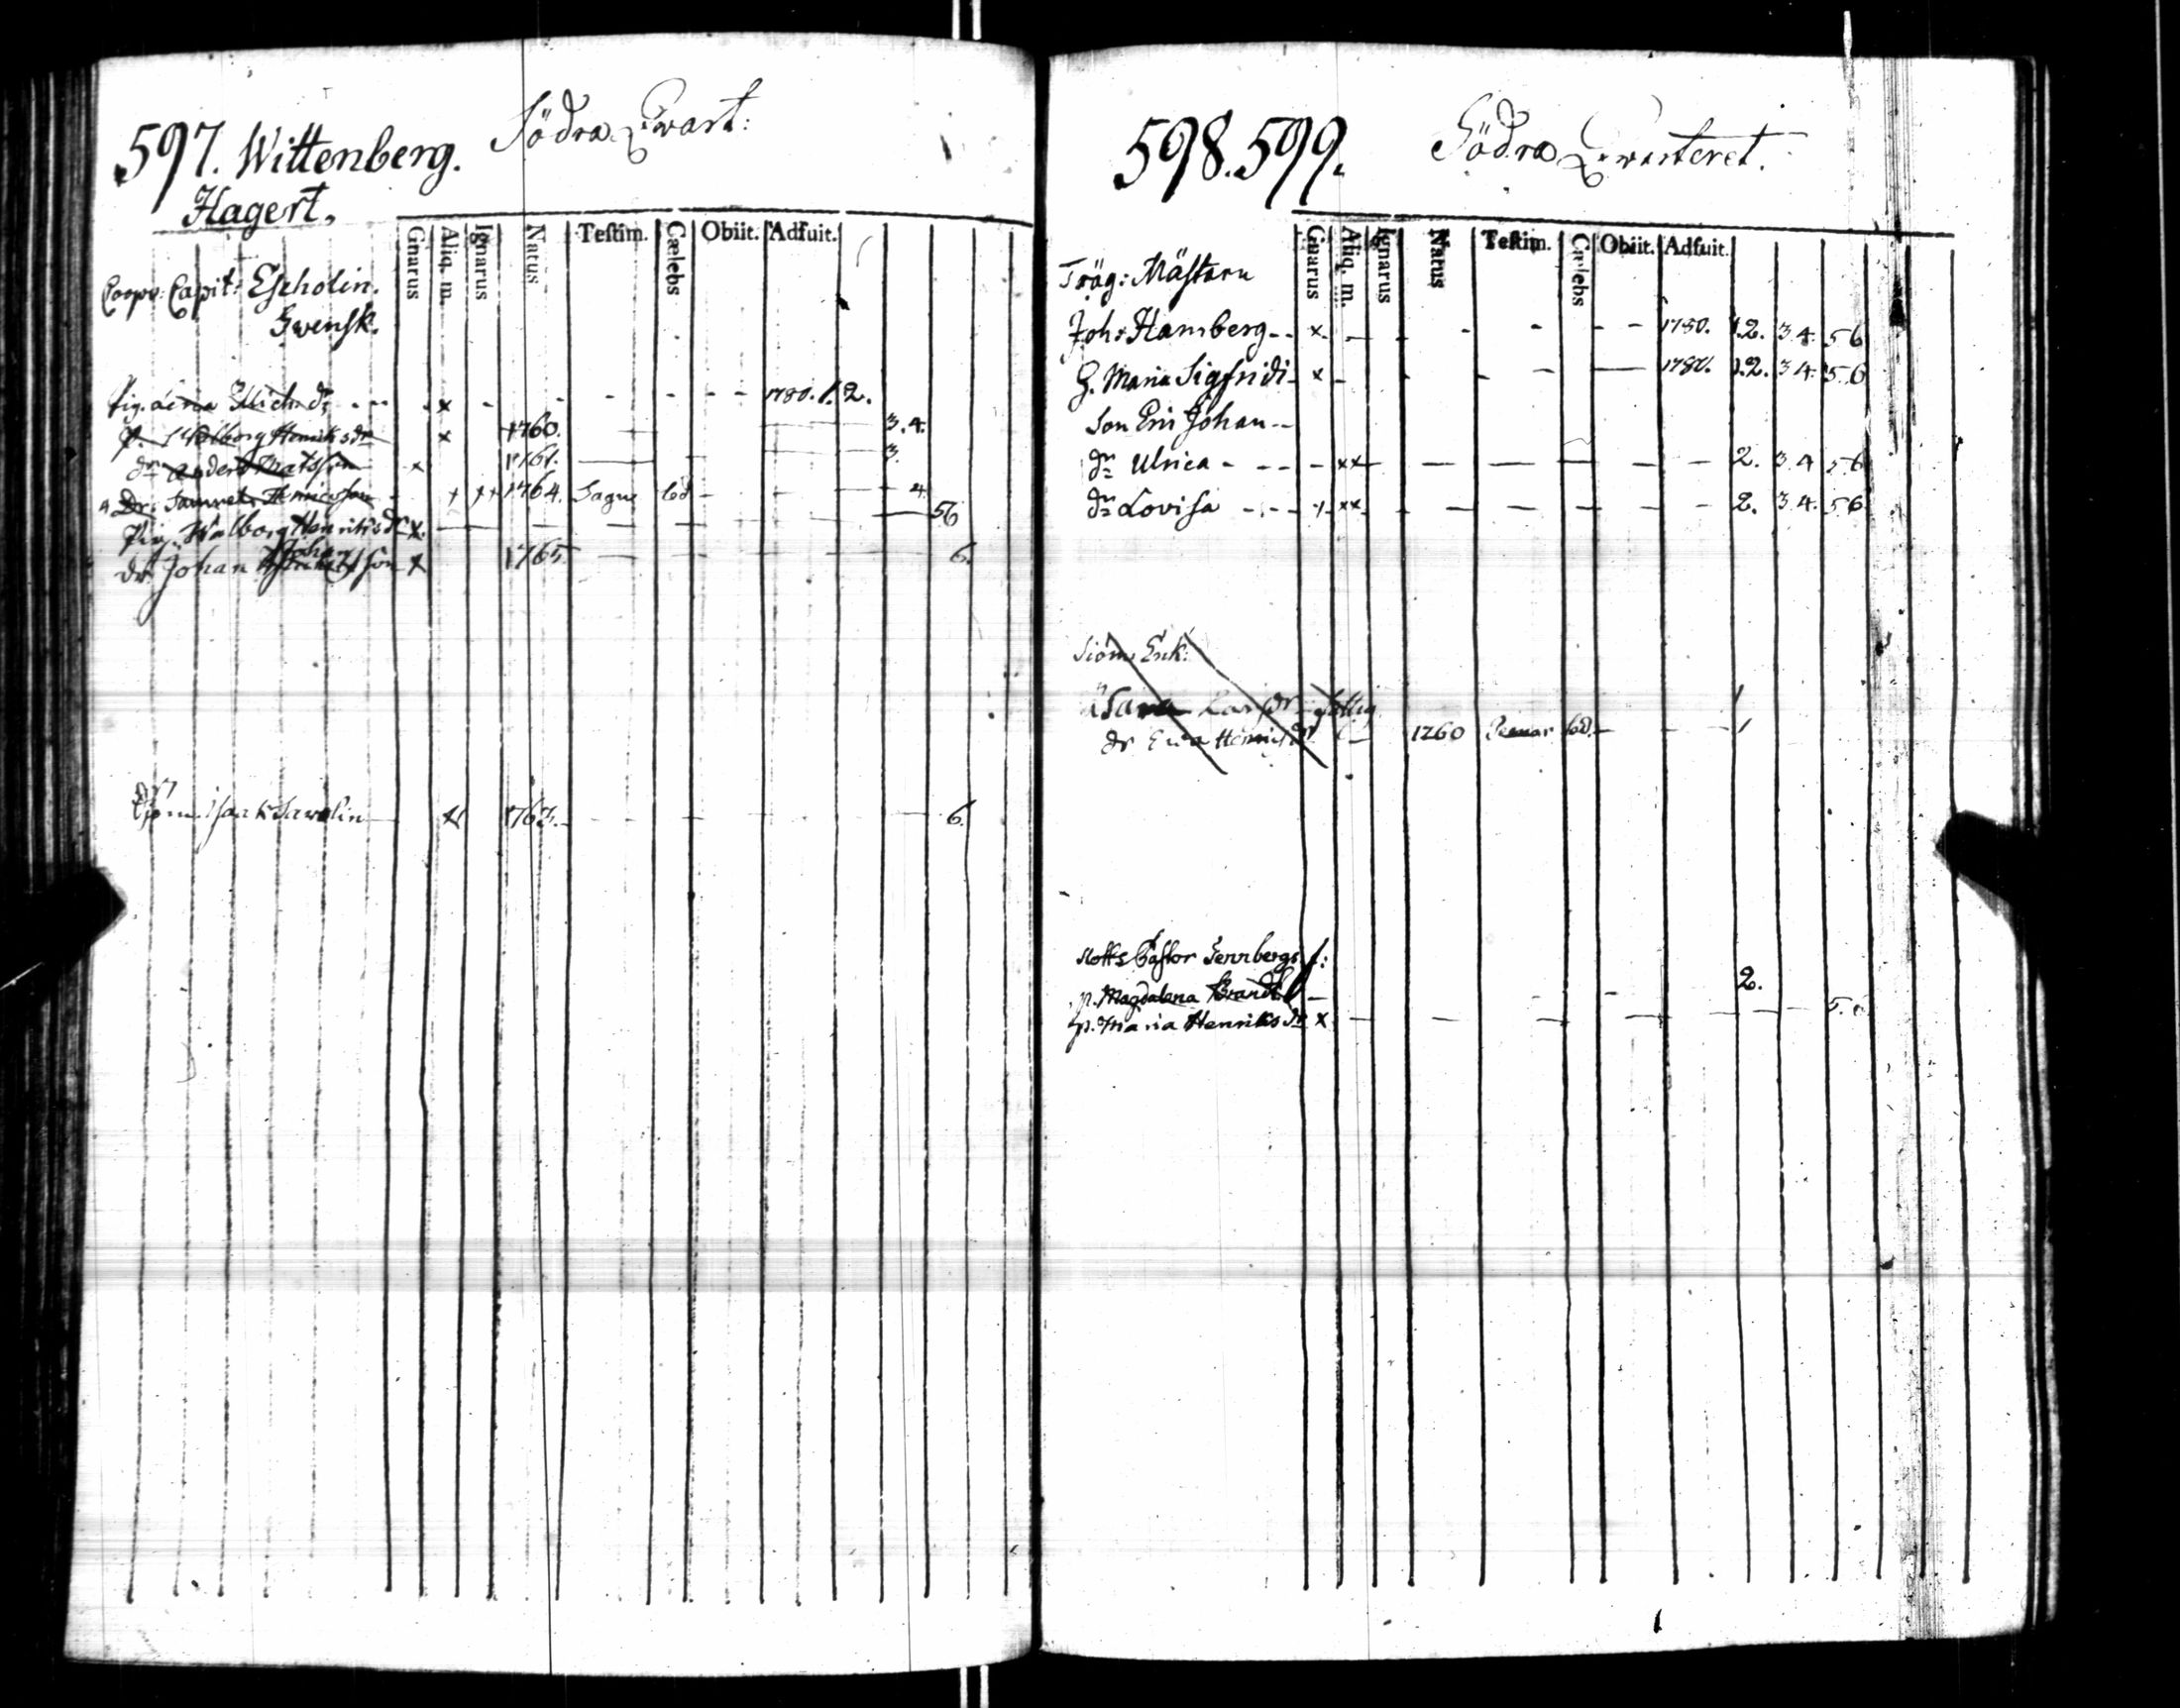 597. Wittenberg. Södra Qwart:
Hagert.
Gnarus Aliq. m. Ignarus Natus Testim. Cælebs Obiit. Adfuit.
Capit: Escholin.
Svensk.
Pig. 1780. 1. 2.
p. Walborg Henriksdr x 1760. 3. 4.
dr Anders Matsson x 1761. 3.
Dr: Samuel Henricsson + ++ 1764. Sagu 4
Pig. Walborg Henriksdr x. 56
dr Johan Johansson x 1765. 6.
Isaak Savolin x 1763. 6.
598. 599. Södra Qwarteret.
Gnarus Aliq. m. Ignarus Natus Testim. Cælebs Obiit. Adfuit.
Träg: Mästarn
Joh: Hamberg - - x - - - - - 1780. 1.2. 3 4. 5 6
H. Maria Sigfridi - x - - - - 1780. 1.2. 3 4. 5 6
Son Eric Johan - -
dr Ulrica - - - - xx - - - - - 2. 3 4 5 6
dr Lovisa - - - + xx - - - - - 2. 3 4. 5 6
Enk:
Sara
dr Ewa 1760 1
Slotts Pastor Sernbergs
p. Magdalena Brandt - - - 2.
p. Maria Henriksdr x - - - - - - 5.